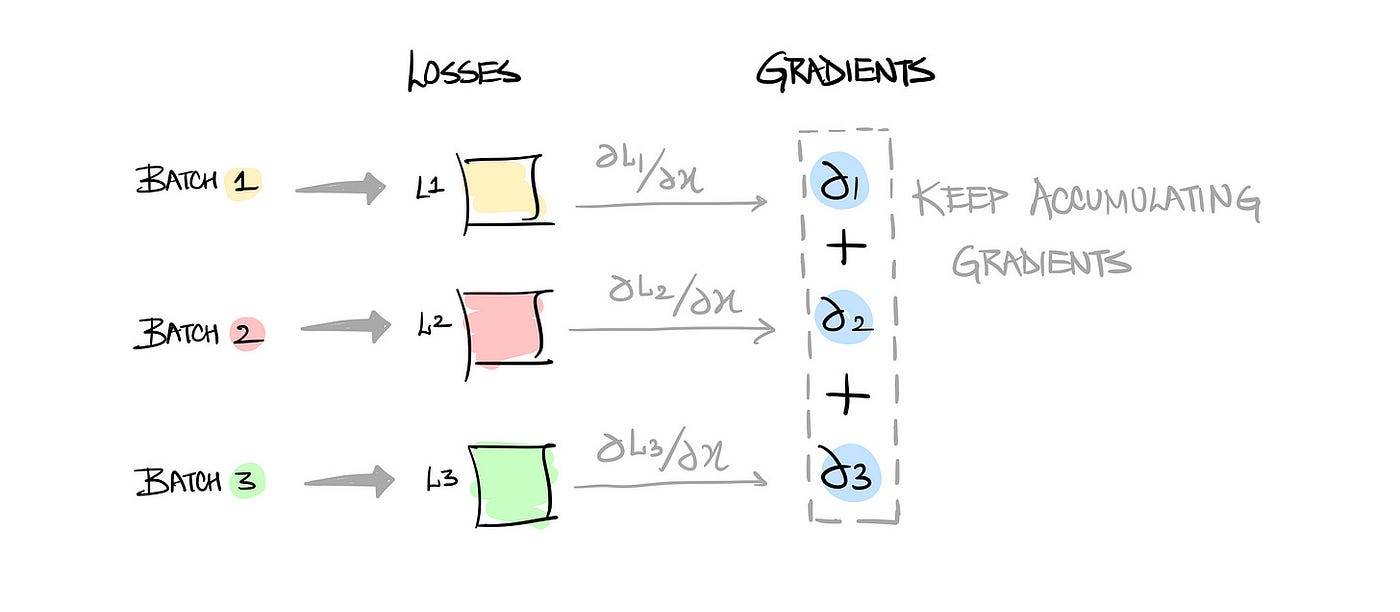 LOSSES
GRADIENTS
BATCH 1
L1
∂L1/∂x
∂1
KEEP ACCUMULATING
GRADIENTS
+
BATCH 2
L2
∂L2/∂x
∂2
+
BATCH 3
L3
∂L3/∂x
∂3